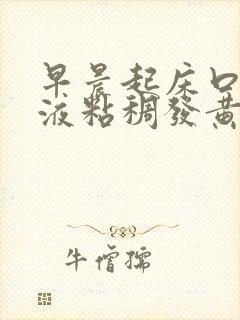 早晨起床口
液粘稠發黃
牛僧孺